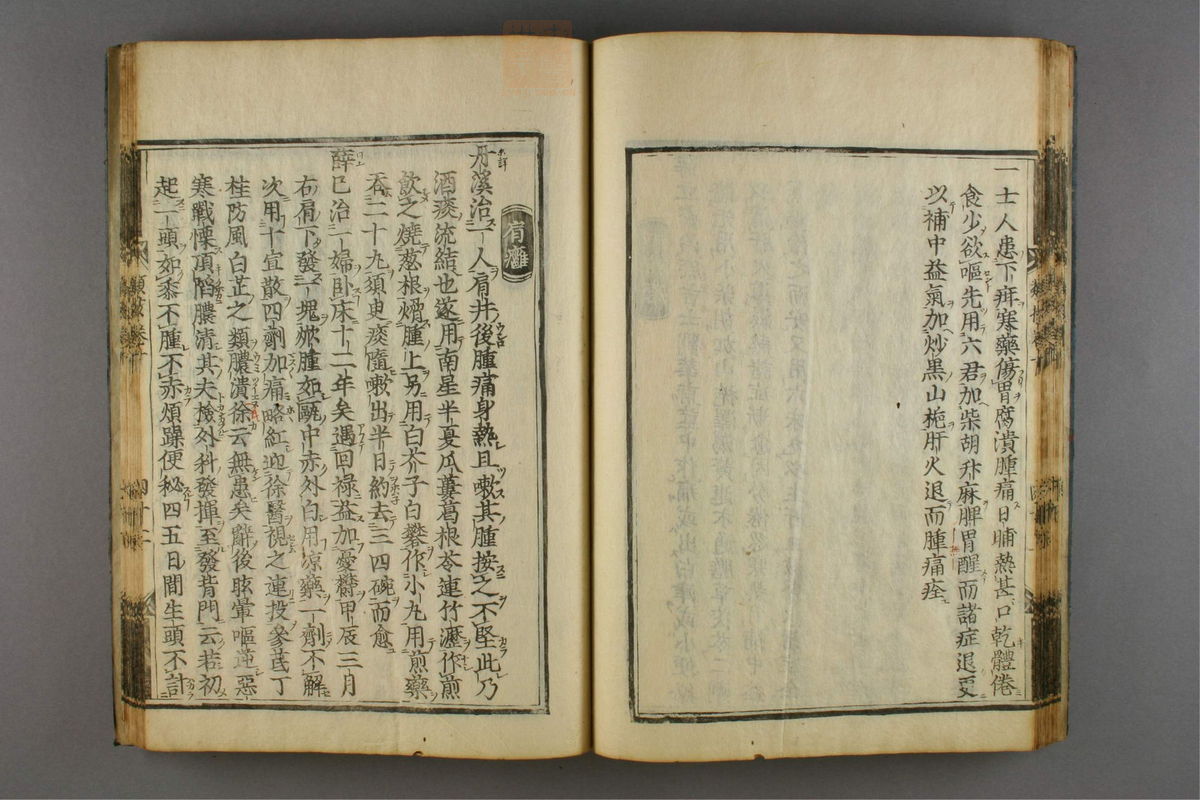 一士人患下疳寒藥傷胃腐潰腫痛日晡熱甚口乾體倦
食少欲嘔先用六君加柴胡升麻脾胃醒而諸症退更
以補中益氣加炒黑山梔肝火退而腫痛痊
肩癰
丹溪治一人肩井後腫痛身熱且嗽其腫按之不堅此乃
酒痰流結也遂用南星半夏瓜蔞葛根芩連竹瀝作煎
飲之燒葱根熨腫上另用白芥子白礬作小丸用煎藥
吞二十丸須臾痰隨嗽出半日約去三四碗而愈
薛己治一婦臥床十二年矣遇回祿益加憂鬱甲辰三月
右肩下發一塊焮腫如甌中赤外白用涼藥一劑不解
次用十宣散四劑加痛略紅迎徐醫視之連投參芪丁
桂防風白芷之類膿潰徐云無患矣辭後眩暈嘔逆惡
寒戰慄頂陷膿清其夫檢外科發揮至發背門云若初
起一頭如黍不腫不赤煩躁便秘四五日間生頭不計